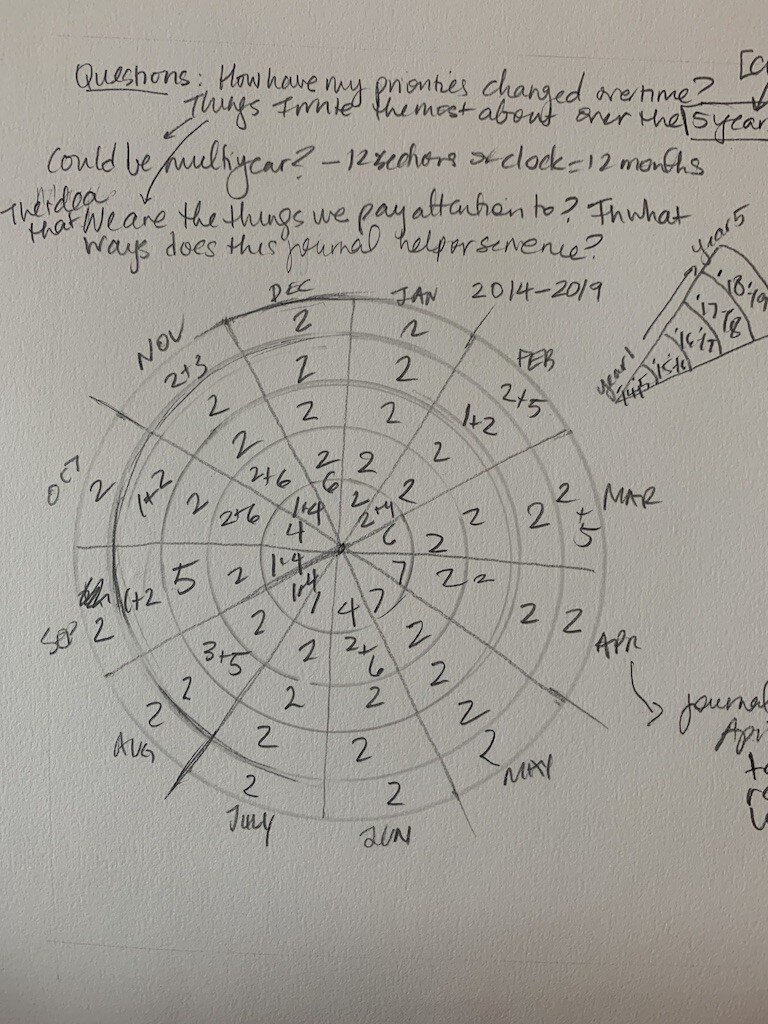 Questions: How have my priorities changed over time?
Things I write the most about over the 5 year
Could be multiyear? - 12 sectors of clock = 12 months
The idea
that We are the things we pay attention to? In what
ways does this journal help or serve me?
year 5
DEC JAN 2014-2019
'18-'19
'17-'18
'16-'17
'15-'16
'14-'15
year 1
NOV 2 2 FEB
2+3 2 2 2+5
2 2 2 1+2
OCT 2 2 2 2 MAR
2 1+2 2 2+6 6 2 2 2 2 2+5
2+6 1+4 2+4
4 6 2
1+2 5 2 1+4 7 2 2
SEP 2 1+4 1 4 7 2 2 APR
2 2 2+6 2
3+5 2
2 2 2 2
2 2 2 2
AUG 2 2 MAY
JULY JUN
Journal
Apr